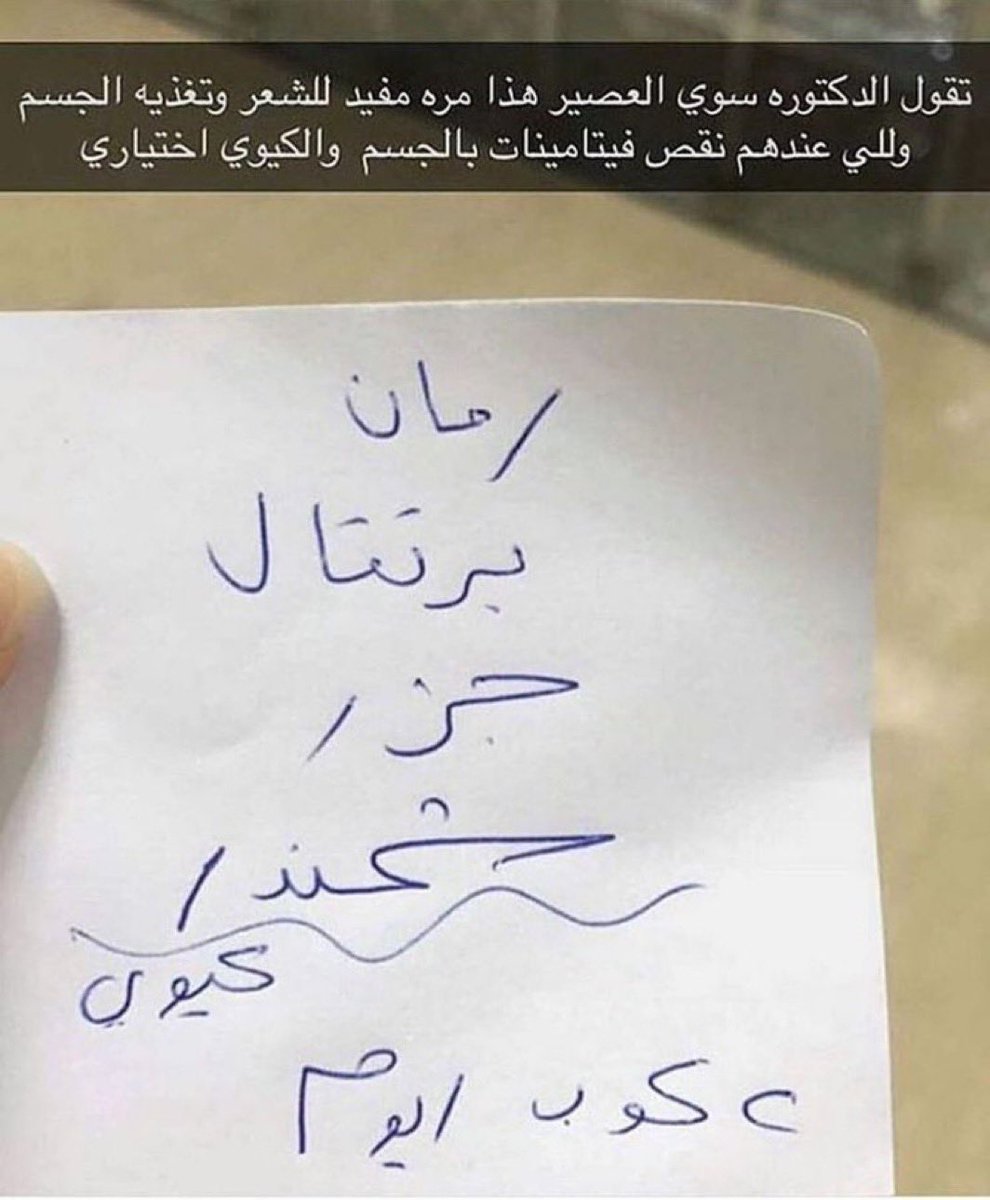 تقول الدكتوره سوي العصير هذا مره مفيد للشعر وتغذيه الجسم
وللي عندهم نقص فيتامينات بالجسم والكيوي اختياري
رمان
برتتال
جزر
شمندر
كيوي
كوب اليوم